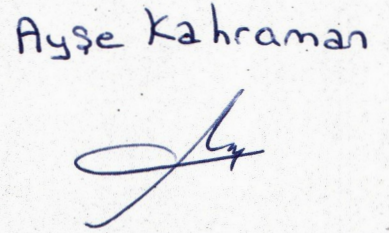 Ayşe Kahraman